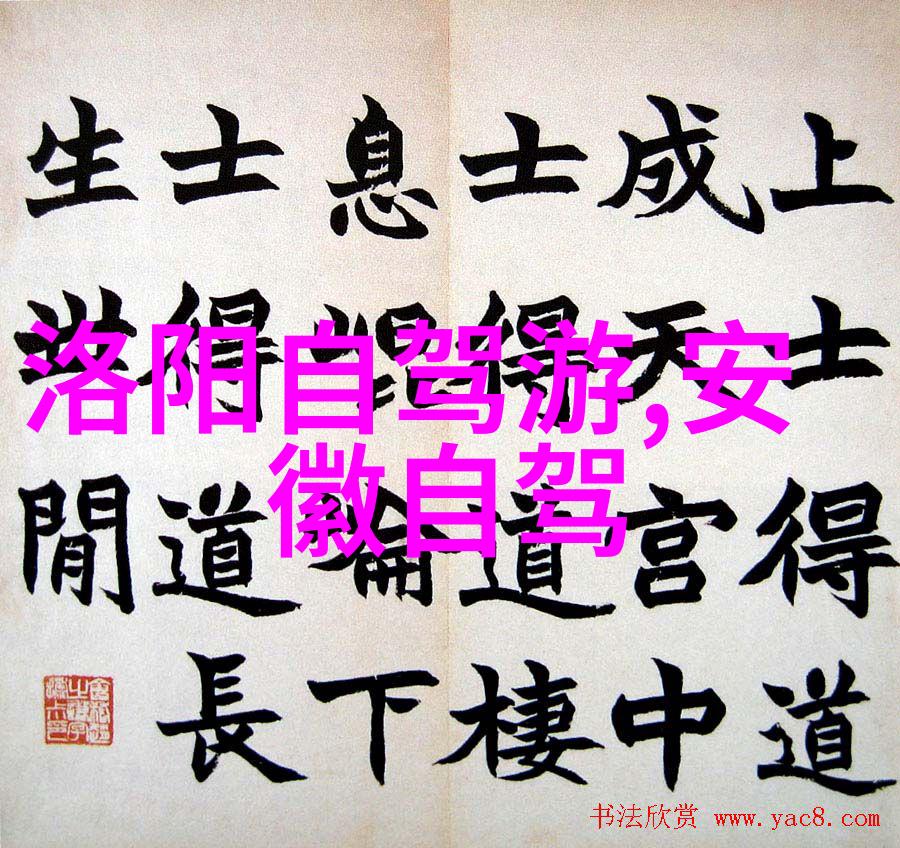 上士得道
成天宮中
士得道棲
息下
士得道長
生世閒
洛阳自驾游,安
徽自驾
书法欣赏 www.yac8.com